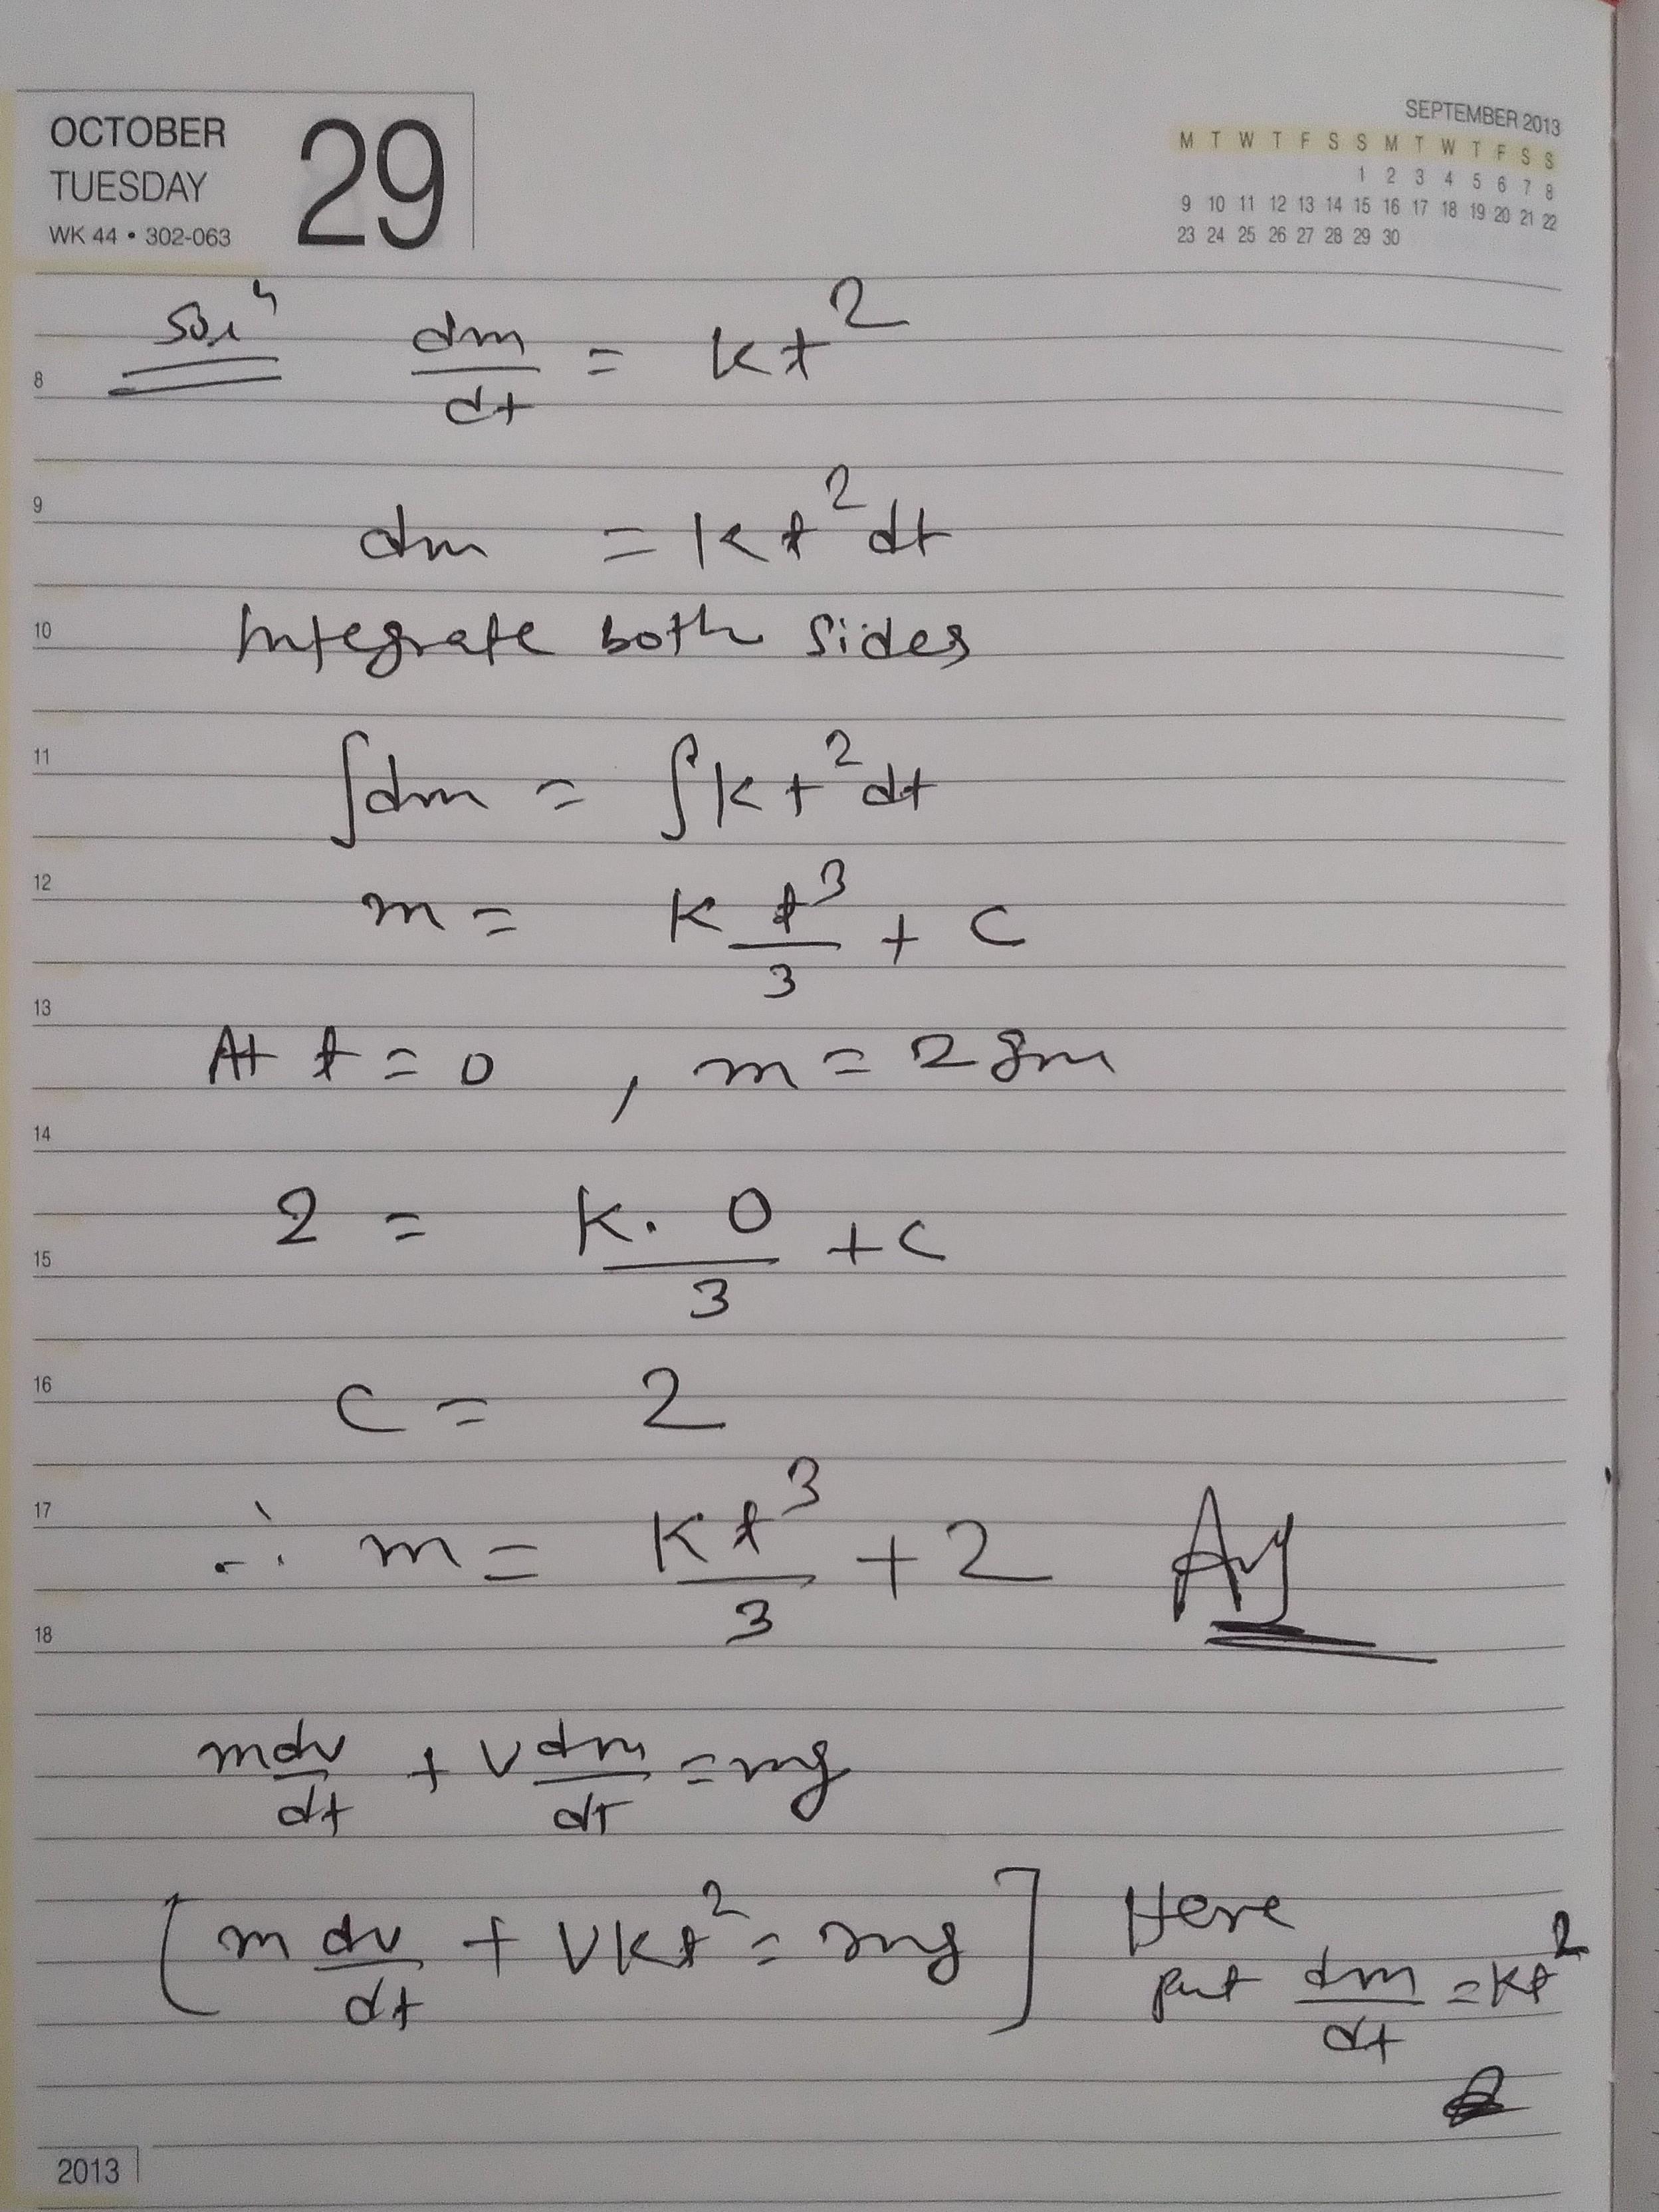 OCTOBER
TUESDAY
WK 44 • 302-063
29
SEPTEMBER 2013
M T W T F S S M T W T F S S
1 2 3 4 5 6 7 8
9 10 11 12 13 14 15 16 17 18 19 20 21 22
23 24 25 26 27 28 29 30
Solⁿ dm/dt = kt²
8
9
dm = kt² dt
10
Integrate both sides
11
∫dm = ∫kt² dt
12
m = k t³/3 + c
13
At t = 0 , m = 2 gm
14
2 = k. 0/3 + c
15
16
c = 2
17
∴ m = kt³/3 + 2
18
m dv/dt + v dm/dt = mg
[m dv/dt + vkt² = mg] Here
put dm/dt = kt²
2013